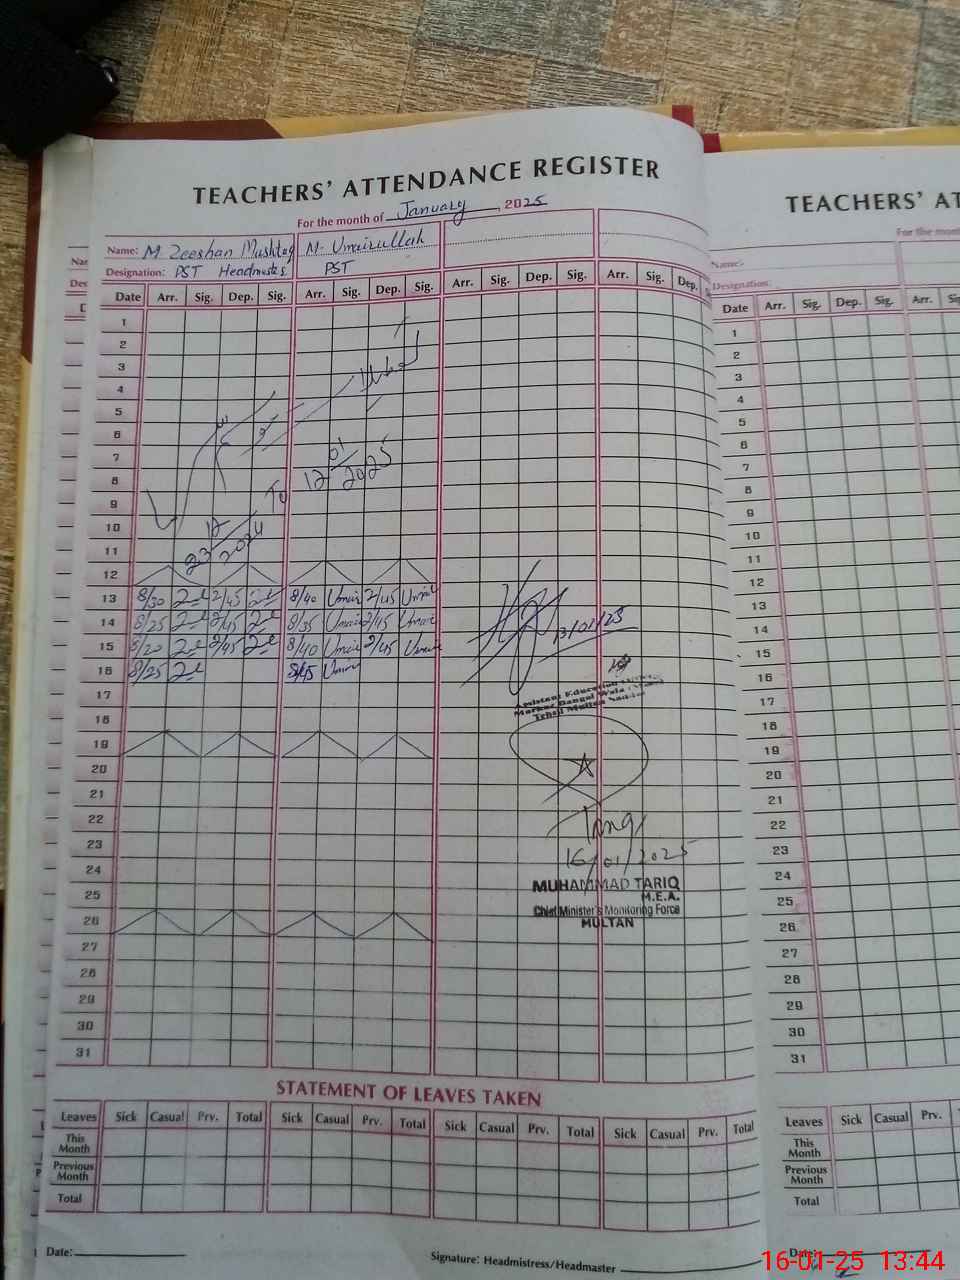 TEACHERS' ATTENDANCE REGISTER
For the month of January, 2025
Name: M Zeeshan Mushtaq M. Umairullah
Designation: PST Headmaster PST
Date Arr. Sig. Dep. Sig. Arr. Sig. Dep. Sig. Arr. Sig. Dep. Sig. Arr. Sig. Dep.
1
2
3
4
5
6
7
8
9
10
11
23/12/2024 To 12/01/2025
12
13 8/30 2/45 8/40 Umair 2/45 Umair
14 8/25 2/45 8/35 Umair 2/45 Umair
15 8/20 2/45 8/40 Umair 2/45 Umair
16 8/25 8/45 Umair
13/01/25
17
Assistant Education
Markaz Bangal Wala
Tehsil Multan Saddar
18
19
20
21
22
Tariq
23
16/01/2025
24
MUHAMMAD TARIQ
M.E.A.
25
Chief Minister's Monitoring Force
MULTAN
26
27
28
29
30
31
STATEMENT OF LEAVES TAKEN
Leaves Sick Casual Prv. Total Sick Casual Prv. Total Sick Casual Prv. Total Sick Casual Prv. Total
This Month
Previous Month
Total
Date:
Signature: Headmistress/Headmaster
TEACHERS' AT
For the month
Name:-
Designation:
Date Arr. Sig. Dep. Sig. Arr. Sig.
1
2
3
4
5
6
7
8
9
10
11
12
13
14
15
16
17
18
19
20
21
22
23
24
25
26
27
28
29
30
31
Leaves Sick Casual Prv.
This Month
Previous Month
Total
Date:
16-01-25 13:44